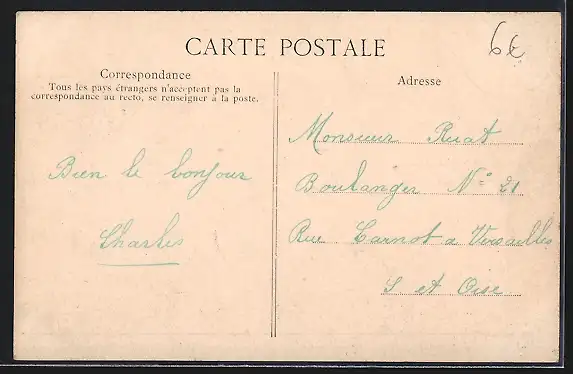 6€
CARTE POSTALE
Correspondance
Tous les pays étrangers n'acceptent pas la
correspondance au recto, se renseigner à la poste.
Bien le bonjour
Charles
Adresse
Monsieur Ruat
Boulanger N° 21
Rue Carnot a Versailles
S et Oise